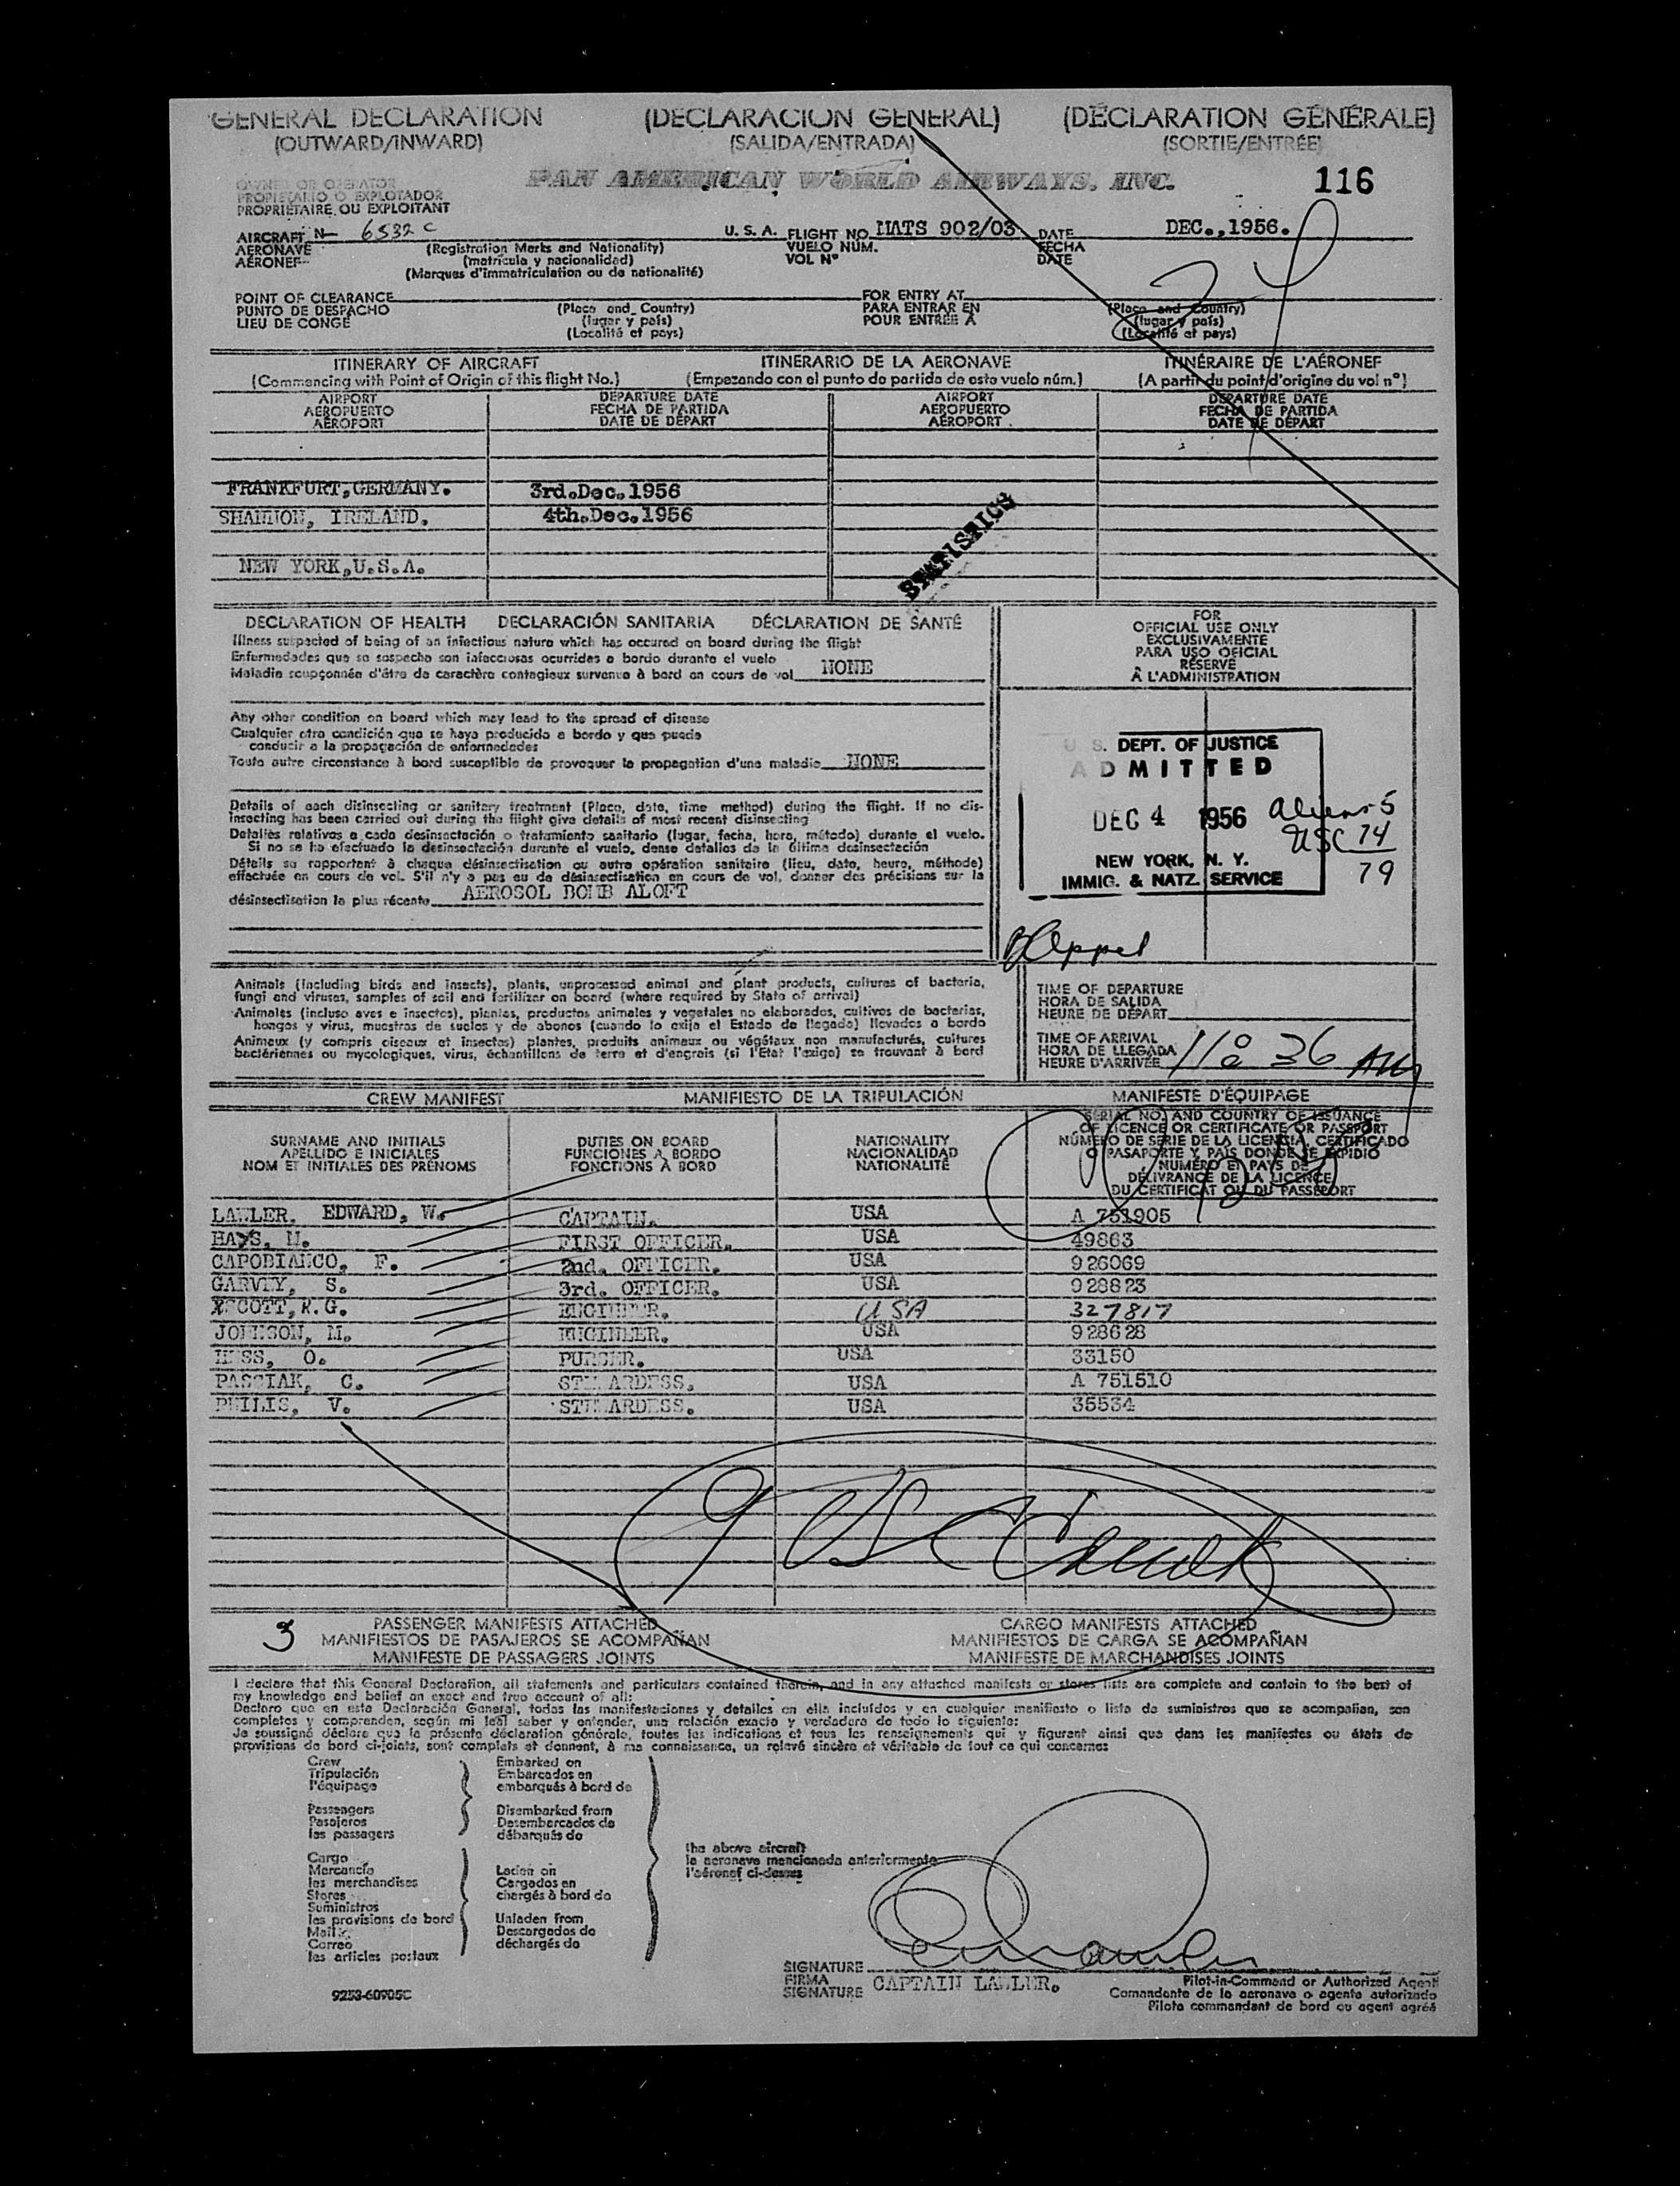 GENERAL DECLARATION (DECLARACION GENERAL) (DÉCLARATION GÉNÉRALE)
(OUTWARD/INWARD) (SALIDA/ENTRADA) (SORTIE/ENTRÉE)
OWNER OR OPERATOR PAN AMERICAN WORLD AIRWAYS, INC. 116
PROPIETARIO O EXPLOTADOR
PROPRIÉTAIRE OU EXPLOITANT
AIRCRAFT N- 6532 C U. S. A. FLIGHT NO. MATS 902/03 DATE DEC.,1956.
AERONAVE (Registration Marks and Nationality) VUELO NÚM. FECHA
AÉRONEF (matrícula y nacionalidad) VOL Nº DATE
(Marques d'immatriculation ou de nationalité)
POINT OF CLEARANCE (Place and Country) FOR ENTRY AT (Place and Country)
PUNTO DE DESPACHO (lugar y país) PARA ENTRAR EN (lugar y país)
LIEU DE CONGÉ (Localité et pays) POUR ENTRÉE À (Localité et pays)
ITINERARY OF AIRCRAFT ITINERARIO DE LA AERONAVE ITINÉRAIRE DE L'AÉRONEF
(Commencing with Point of Origin of this flight No.) (Empezando con el punto de partida de este vuelo núm.) (A partir du point d'origine du vol nº)
AIRPORT DEPARTURE DATE AIRPORT DEPARTURE DATE
AEROPUERTO FECHA DE PARTIDA AEROPUERTO FECHA DE PARTIDA
AÉROPORT DATE DE DÉPART AÉROPORT DATE DE DÉPART
FRANKFURT,GERMANY. 3rd.Dec.1956
SHANNON, IRELAND. 4th.Dec.1956
STATISTICS
NEW YORK,U.S.A.
DECLARATION OF HEALTH DECLARACIÓN SANITARIA DÉCLARATION DE SANTÉ
Illness suspected of being of an infectious nature which has occured on board during the flight
Enfermedades que se sospecha son infecciosas ocurridas a bordo durante el vuelo
Maladie soupçonnée d'être de caractère contagieux survenue à bord en cours de vol NONE
Any other condition on board which may lead to the spread of disease
Cualquier otra condición que se haya producido a bordo y que pueda
conducir a la propagación de enfermedades
Toute autre circonstance à bord susceptible de provoquer la propagation d'une maladie NONE
Details of each disinsecting or sanitary treatment (Place, date, time method) during the flight. If no dis-
insecting has been carried out during the flight give details of most recent disinsecting
Detalles relativos a cada desinsectación o tratamiento sanitario (lugar, fecha, hora, método) durante el vuelo.
Si no se ha efectuado la desinsectación durante el vuelo, dense detalles de la última desinsectación
Détails se rapportent à chaque désinsectisation ou autre opération sanitaire (lieu, date, heure, méthode)
effectuée en cours de vol. S'il n'y a pas eu de désinsectisation en cours de vol, donner des précisions sur la
désinsectisation la plus récente AEROSOL BOMB ALOFT
FOR
OFFICIAL USE ONLY
EXCLUSIVAMENTE
PARA USO OFICIAL
RÉSERVÉ
À L'ADMINISTRATION
U. S. DEPT. OF JUSTICE
ADMITTED
DEC 4 1956
NEW YORK, N. Y.
IMMIG. & NATZ. SERVICE
Aliens 5
USC 74
79
Animals (including birds and insects), plants, unprocessed animal and plant products, cultures of bacteria,
fungi and viruses, samples of soil and fertilizer on board (where required by State of arrival)
Animales (incluso aves e insectos), plantas, productos animales y vegetales no elaborados, cultivos de bacterias,
hongos y virus, muestras de suelos y de abonos (cuando lo exija el Estado de llegada) llevados a bordo
Animaux (y compris oiseaux et insectes) plantes, produits animaux ou végétaux non manufacturés, cultures
bactériennes ou mycologiques, virus, échantillons de terre et d'engrais (si l'Etat l'exige) se trouvant à bord
TIME OF DEPARTURE
HORA DE SALIDA
HEURE DE DÉPART
TIME OF ARRIVAL
HORA DE LLEGADA
HEURE D'ARRIVÉE 11:36 AM
CREW MANIFEST MANIFIESTO DE LA TRIPULACIÓN MANIFESTE D'ÉQUIPAGE
SURNAME AND INITIALS DUTIES ON BOARD NATIONALITY
APELLIDO E INICIALES FUNCIONES A BORDO NACIONALIDAD
NOM ET INITIALES DES PRÉNOMS FONCTIONS À BORD NATIONALITÉ
SERIAL NO. AND COUNTRY OF ISSUANCE
OF LICENCE OR CERTIFICATE OR PASSPORT
NÚMERO DE SERIE DE LA LICENCIA, CERTIFICADO
O PASAPORTE Y PAÍS DONDE SE EXPIDIÓ
NUMÉRO ET PAYS DE
DÉLIVRANCE DE LA LICENCE
DU CERTIFICAT OU DU PASSEPORT
LAWLER, EDWARD, W. CAPTAIN. USA A 751905
HAYS, H. FIRST OFFICER. USA 49863
CAPOBIANCO, F. 2nd. OFFICER. USA 926069
GARVEY, S. 3rd. OFFICER. USA 928823
SCOTT, R.G. ENGINEER. USA 327817
JOHNSON, M. ENGINEER. USA 928628
HESS, O. PURSER. USA 33150
PASCIAK, C. STEWARDESS. USA A 751510
PHILIS, V. STEWARDESS. USA 35534
9 USC
3 PASSENGER MANIFESTS ATTACHED CARGO MANIFESTS ATTACHED
MANIFIESTOS DE PASAJEROS SE ACOMPAÑAN MANIFIESTOS DE CARGA SE ACOMPAÑAN
MANIFESTE DE PASSAGERS JOINTS MANIFESTE DE MARCHANDISES JOINTS
I declare that this General Declaration, all statements and particulars contained therein, and in any attached manifests or stores lists are complete and contain to the best of
my knowledge and belief an exact and true account of all:
Declaro que en esta Declaración General, todas las manifestaciones y detalles en ella incluídos y en cualquier manifiesto o lista de suministros que se acompañan, son
completos y comprenden, según mi leal saber y entender, una relación exacta y verdadera de todo lo siguiente:
Je soussigné déclare que la présente déclaration générale, toutes les indications et tous les renseignements qui y figurent ainsi que dans les manifestes ou états de
provisions de bord ci-joints, sont complets et donnent, à ma connaissance, un relevé sincère et véritable de tout ce qui concerne:
Crew Embarked on
Tripulación Embarcados en
l'équipage embarqués à bord de
Passengers Disembarked from
Pasajeros Desembarcados de
les passagers débarqués de
the above aircraft
la aeronave mencionada anteriormente
l'aéronef ci-dessus
Cargo
Mercancía Laden on
les merchandises Cargados en
Stores chargés à bord de
Suministros
les provisions de bord Unladen from
Mail Descargados de
Correo déchargés de
les articles postaux
SIGNATURE
FIRMA CAPTAIN LAWLER.
SIGNATURE
Pilot-in-Command or Authorized Agent
Comandante de la aeronave o agente autorizado
Pilote commandant de bord ou agent agréé
9253-60905C